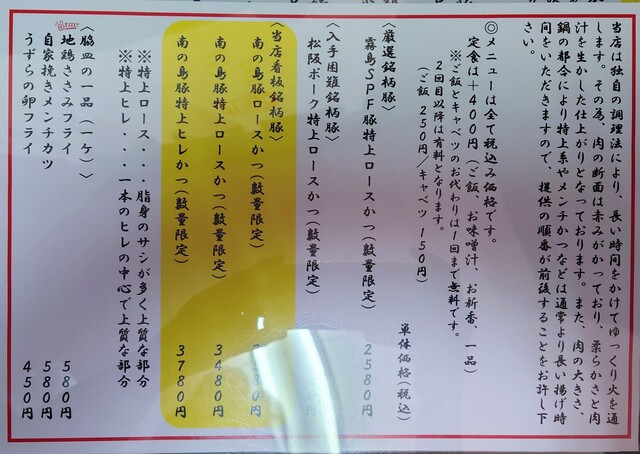 当店は独自の調理法により、長い時間をかけてゆっくり火を通
します。その為、肉の断面は赤みがかっており、柔らかさと肉
汁を生かした仕上がりとなっております。また、肉の大きさ、
鍋の都合により特上系やメンチかつなどは通常より長い揚げ時
間をいただきますので、提供の順番が前後することをお許し下
さい。
◎メニューは全て税込み価格です。
定食は＋400円（ご飯、お味噌汁、お新香、一品）
※ご飯とキャベツのお代わりは1回まで無料です。
2回目以降は有料となります。
（ご飯 250円／キャベツ 150円）
単体価格（税込）
〈厳選銘柄豚〉
霧島SPF豚特上ロースかつ（数量限定） 2580円
〈入手困難銘柄豚〉
松阪ポーク特上ロースかつ（数量限定） 円
〈当店看板銘柄豚〉
南の島豚ロースかつ（数量限定） 580円
南の島豚特上ロースかつ（数量限定） 3480円
南の島豚特上ヒレかつ（数量限定） 3780円
※特上ロース・・・脂身のサシが多く上質な部分
※特上ヒレ・・・・一本のヒレの中心で上質な部分
〈脇皿の一品（一ケ）〉
地鶏ささみフライ 580円
自家挽きメンチカツ 580円
うずらの卵フライ 450円